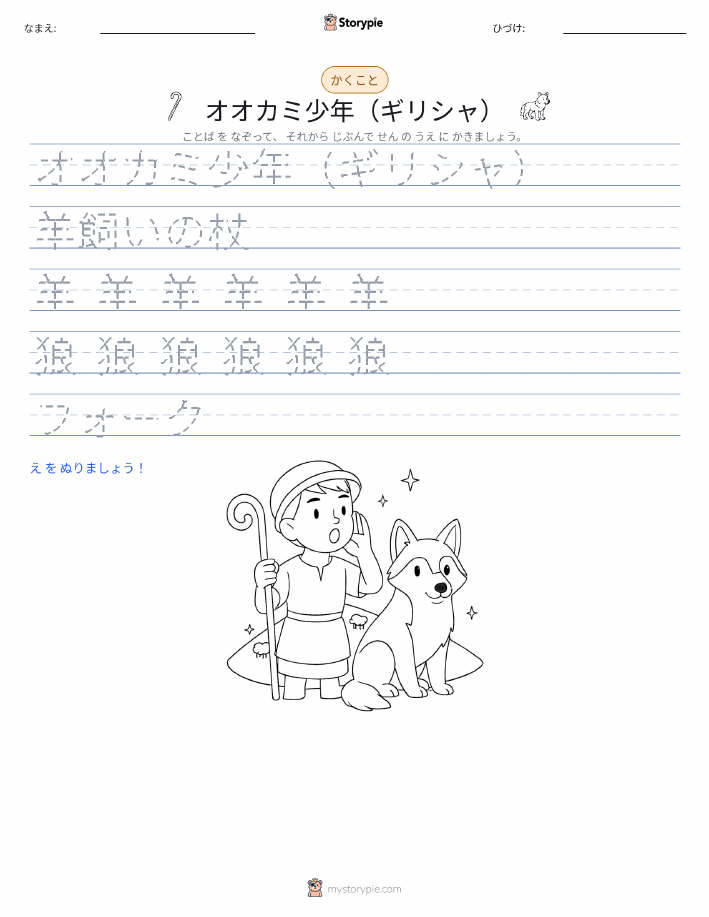 なまえ:
Storypie
ひづけ:
かくこと
オオカミ少年（ギリシャ）
ことば を なぞって、 それから じぶんで せん の うえ に かきましょう。
オオカミ少年（ギリシャ）
羊飼いの杖
羊 羊 羊 羊 羊 羊
狼 狼 狼 狼 狼 狼
フォーク
え を ぬりましょう！
mystorypie.com